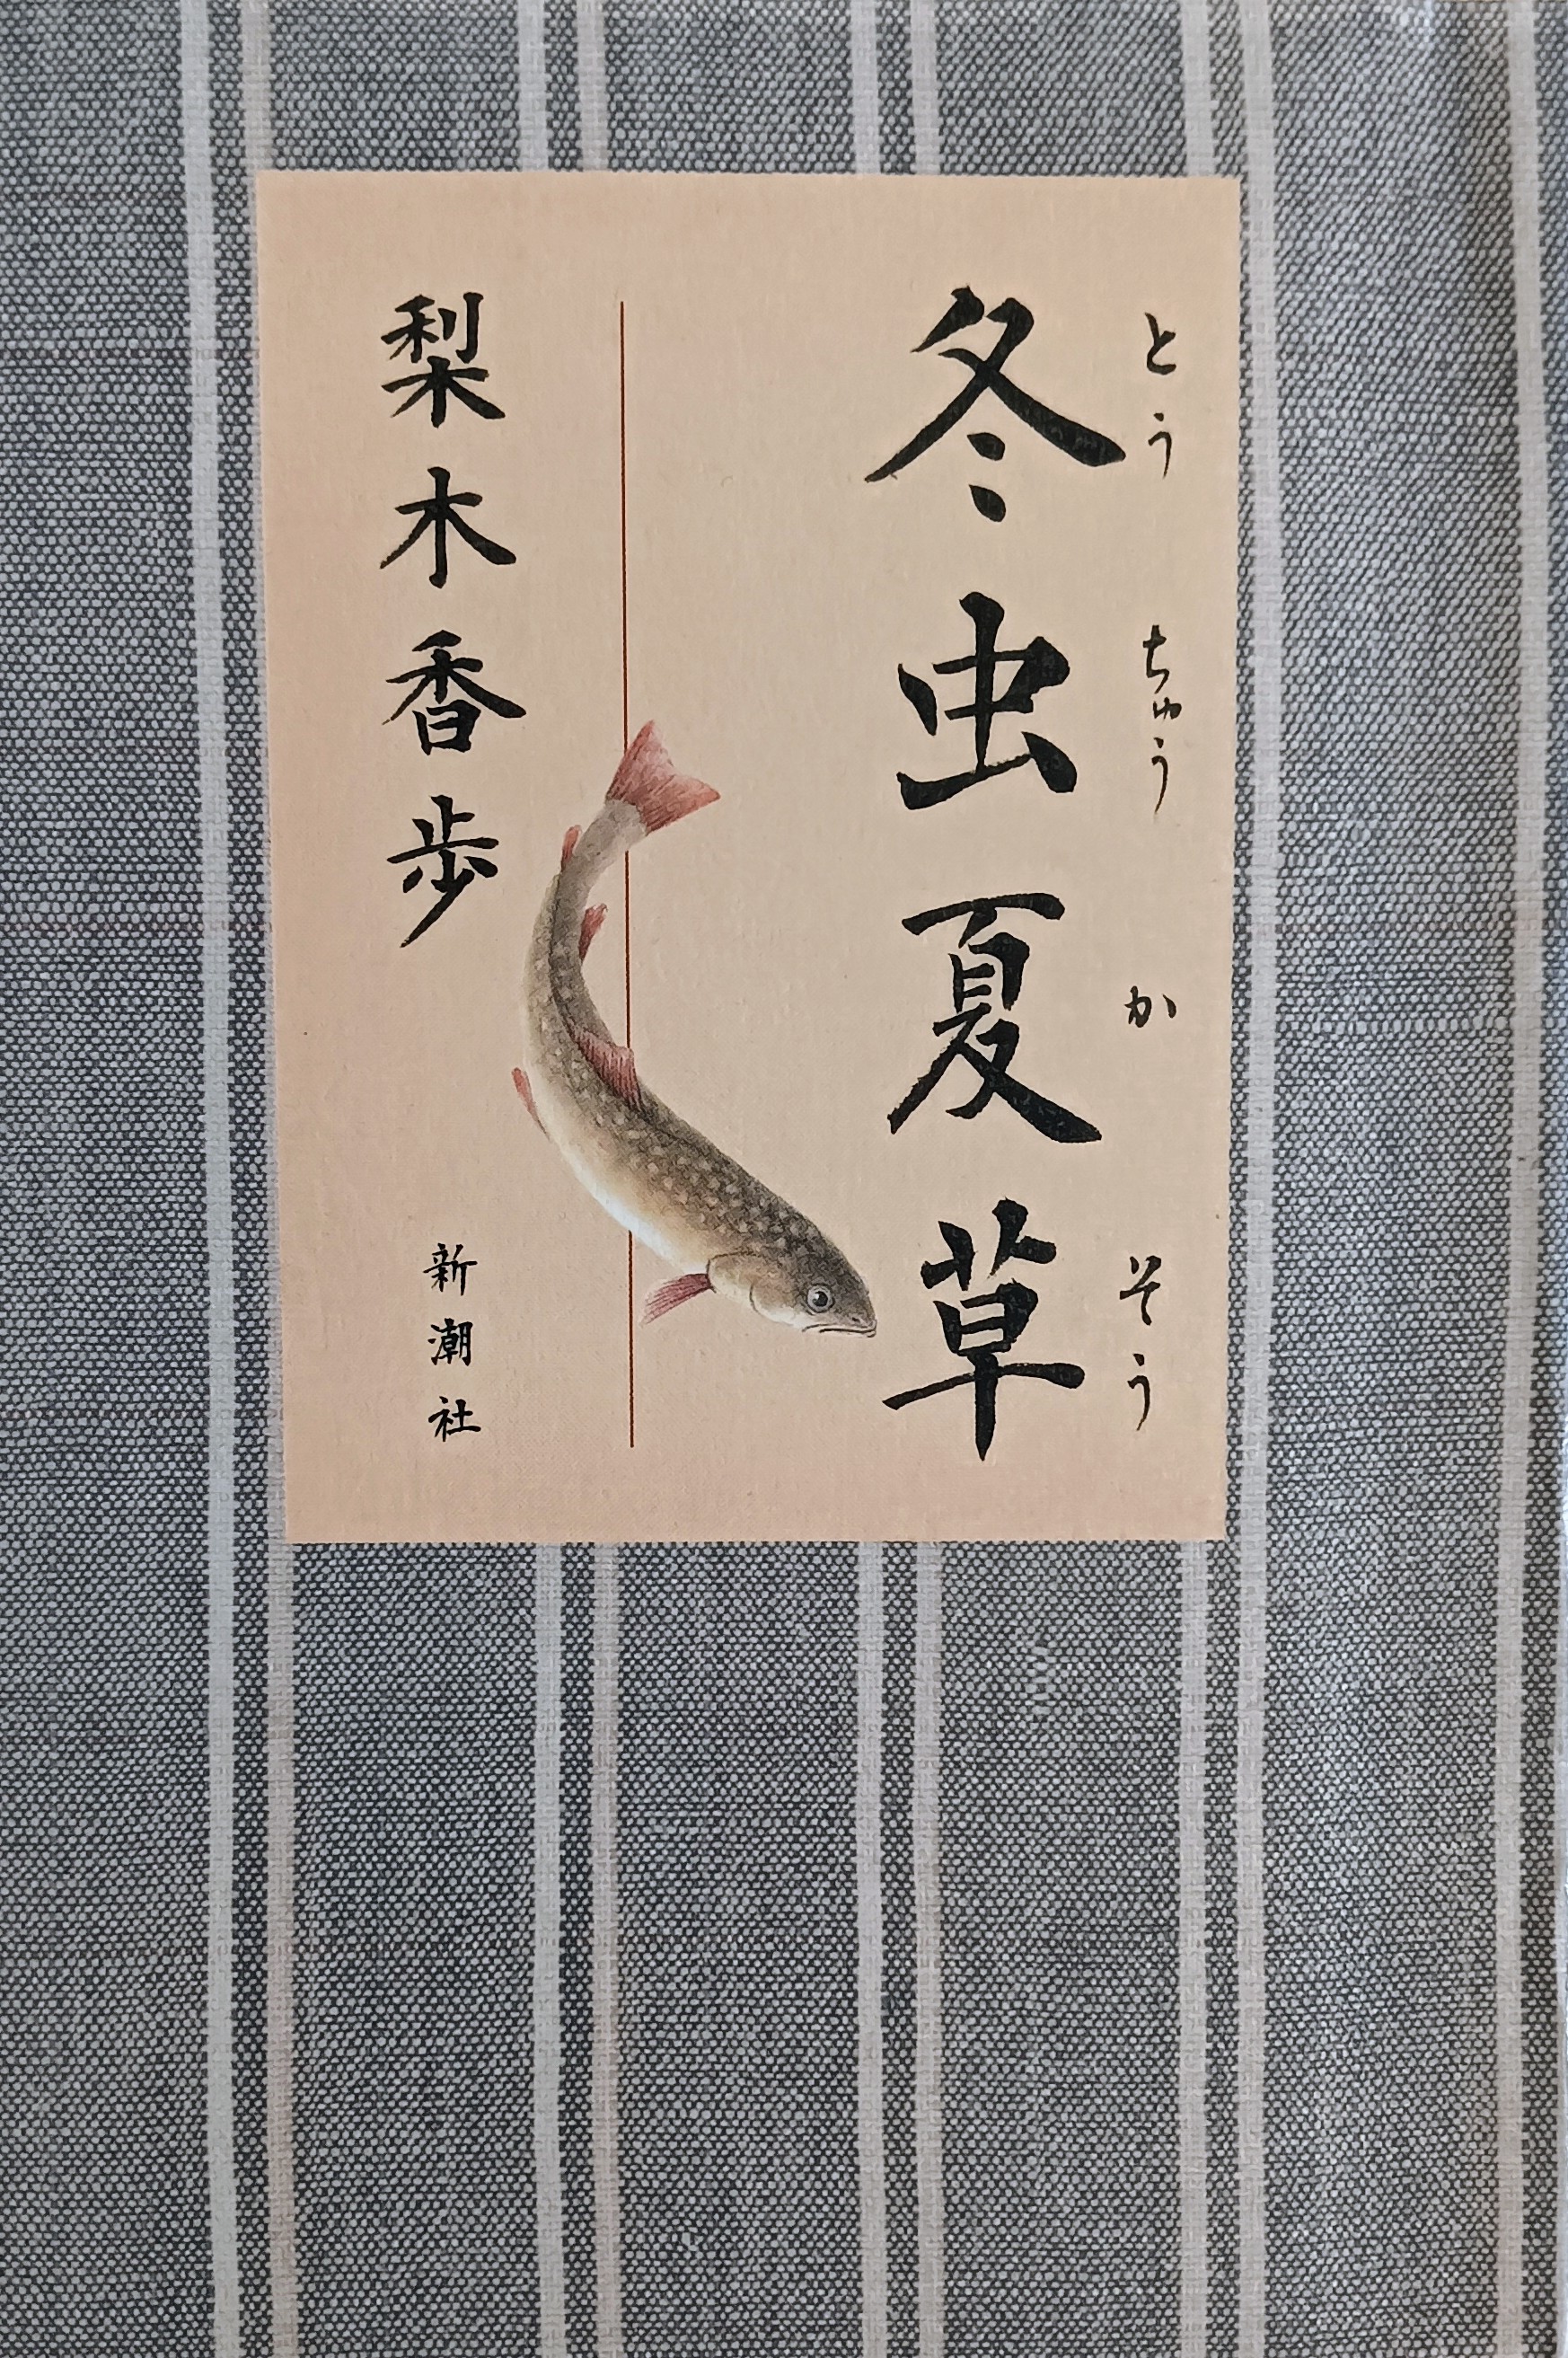 とうちゅうかそう
冬虫夏草
梨木香歩
新潮社